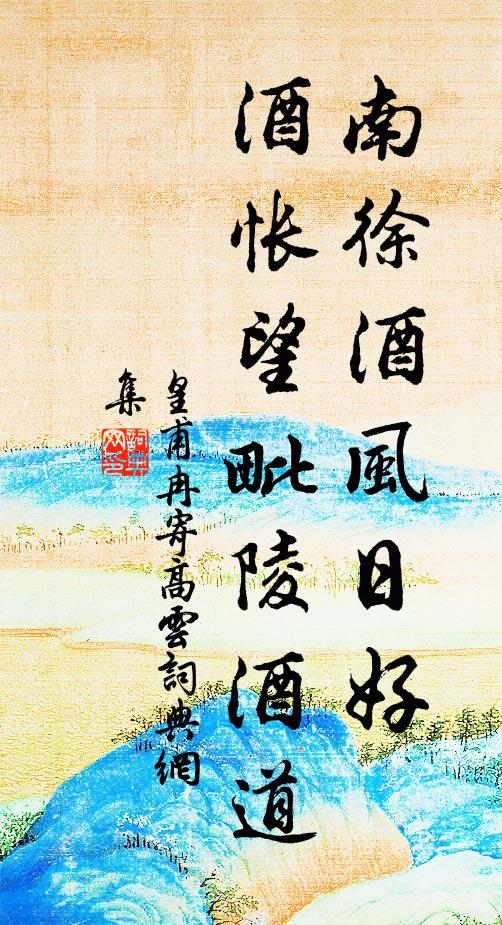 南徐酒風日好
酒悵望毗陵酒道
皇甫冉寄高雲詞典網
集